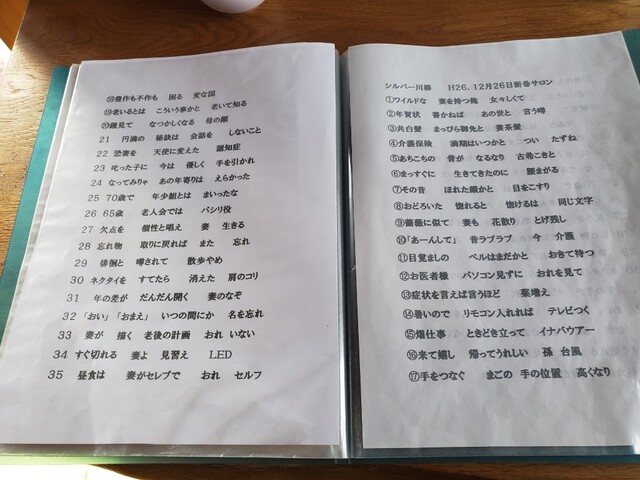 ⑱豊作も不作も 困る 変な国
⑲老いるとは こういう事かと 老いて知る
⑳鏡見て なつかしくなる 母の顔
21 円満の 秘訣は 会話を しないこと
22 恐妻を 天使に変えた 認知症
23 叱った子に 今は 優しく 手を引かれ
24 なってみりゃ あの年寄りは えらかった
25 70歳で 年少組とは まいったな
26 65歳 老人会では パシリ役
27 欠点を 個性と唱え 妻 生きる
28 忘れ物 取りに戻れば また 忘れ
29 徘徊と 噂されて 散歩やめ
30 ネクタイを すてたら 消えた 肩のコリ
31 年の差が だんだん開く 妻のなぞ
32「おい」「おまえ」 いつの間にか 名を忘れ
33 妻が 描く 老後の計画 おれ いない
34 すぐ切れる 妻よ 見習え LED
35 昼食は 妻がセレブで おれ セルフ
シルバー川柳 H26.12月26日新巻サロン
①ワイルドな 妻を持つ俺 女々しくて
②年賀状 書かねば あの世と 言う噂
③共白髪 まっぴら御免と 妻茶髪
④介護保険 満期はいつかと つい たずね
⑤あちこちの 骨が なるなり 古希こきと
⑥まっすぐに 生きてきたのに 腰まがる
⑦その昔 ほれた顔かと 目をこすり
⑧おどろいた 惚れると 惚けるは 同じ文字
⑨薔薇に似て 妻も 花散り とげ残し
⑩「あーんして」 昔ラブラブ 今 介護
⑪目覚ましの ベルはまだかと おきて待つ
⑫お医者様 パソコン見ずに おれを見て
⑬症状を言えば言うほど 薬増え
⑭暑いので リモコン入れれば テレビつく
⑮畑仕事 ときどき立って イナバウアー
⑯来て嬉し 帰ってうれしい 孫 台風
⑰手をつなぐ まごの 手の位置 高くなり